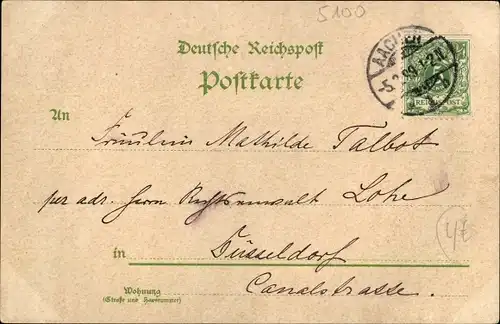 5100
Deutsche Reichspost
Postkarte
AACHEN
REICHSPOST
An
Fräulein Mathilde Talbot
per adr. Herrn Rechtsanwalt Lohe
in Düsseldorf
Canalstrasse.
Wohnung
(Straße und Hausnummer)